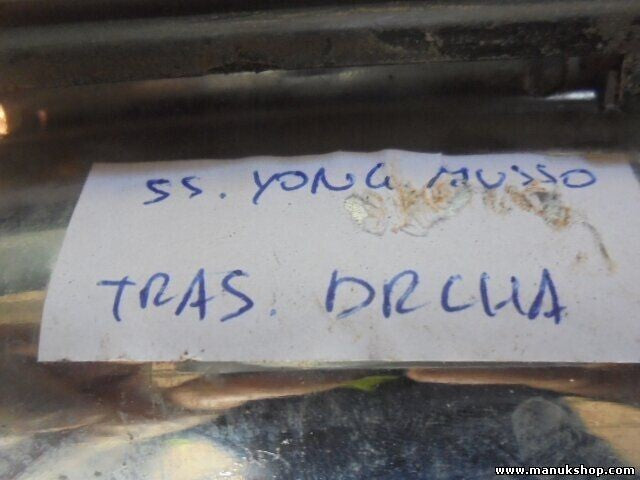 SS. YONG MUSSO
TRAS. DRCHA
www.manukshop.com